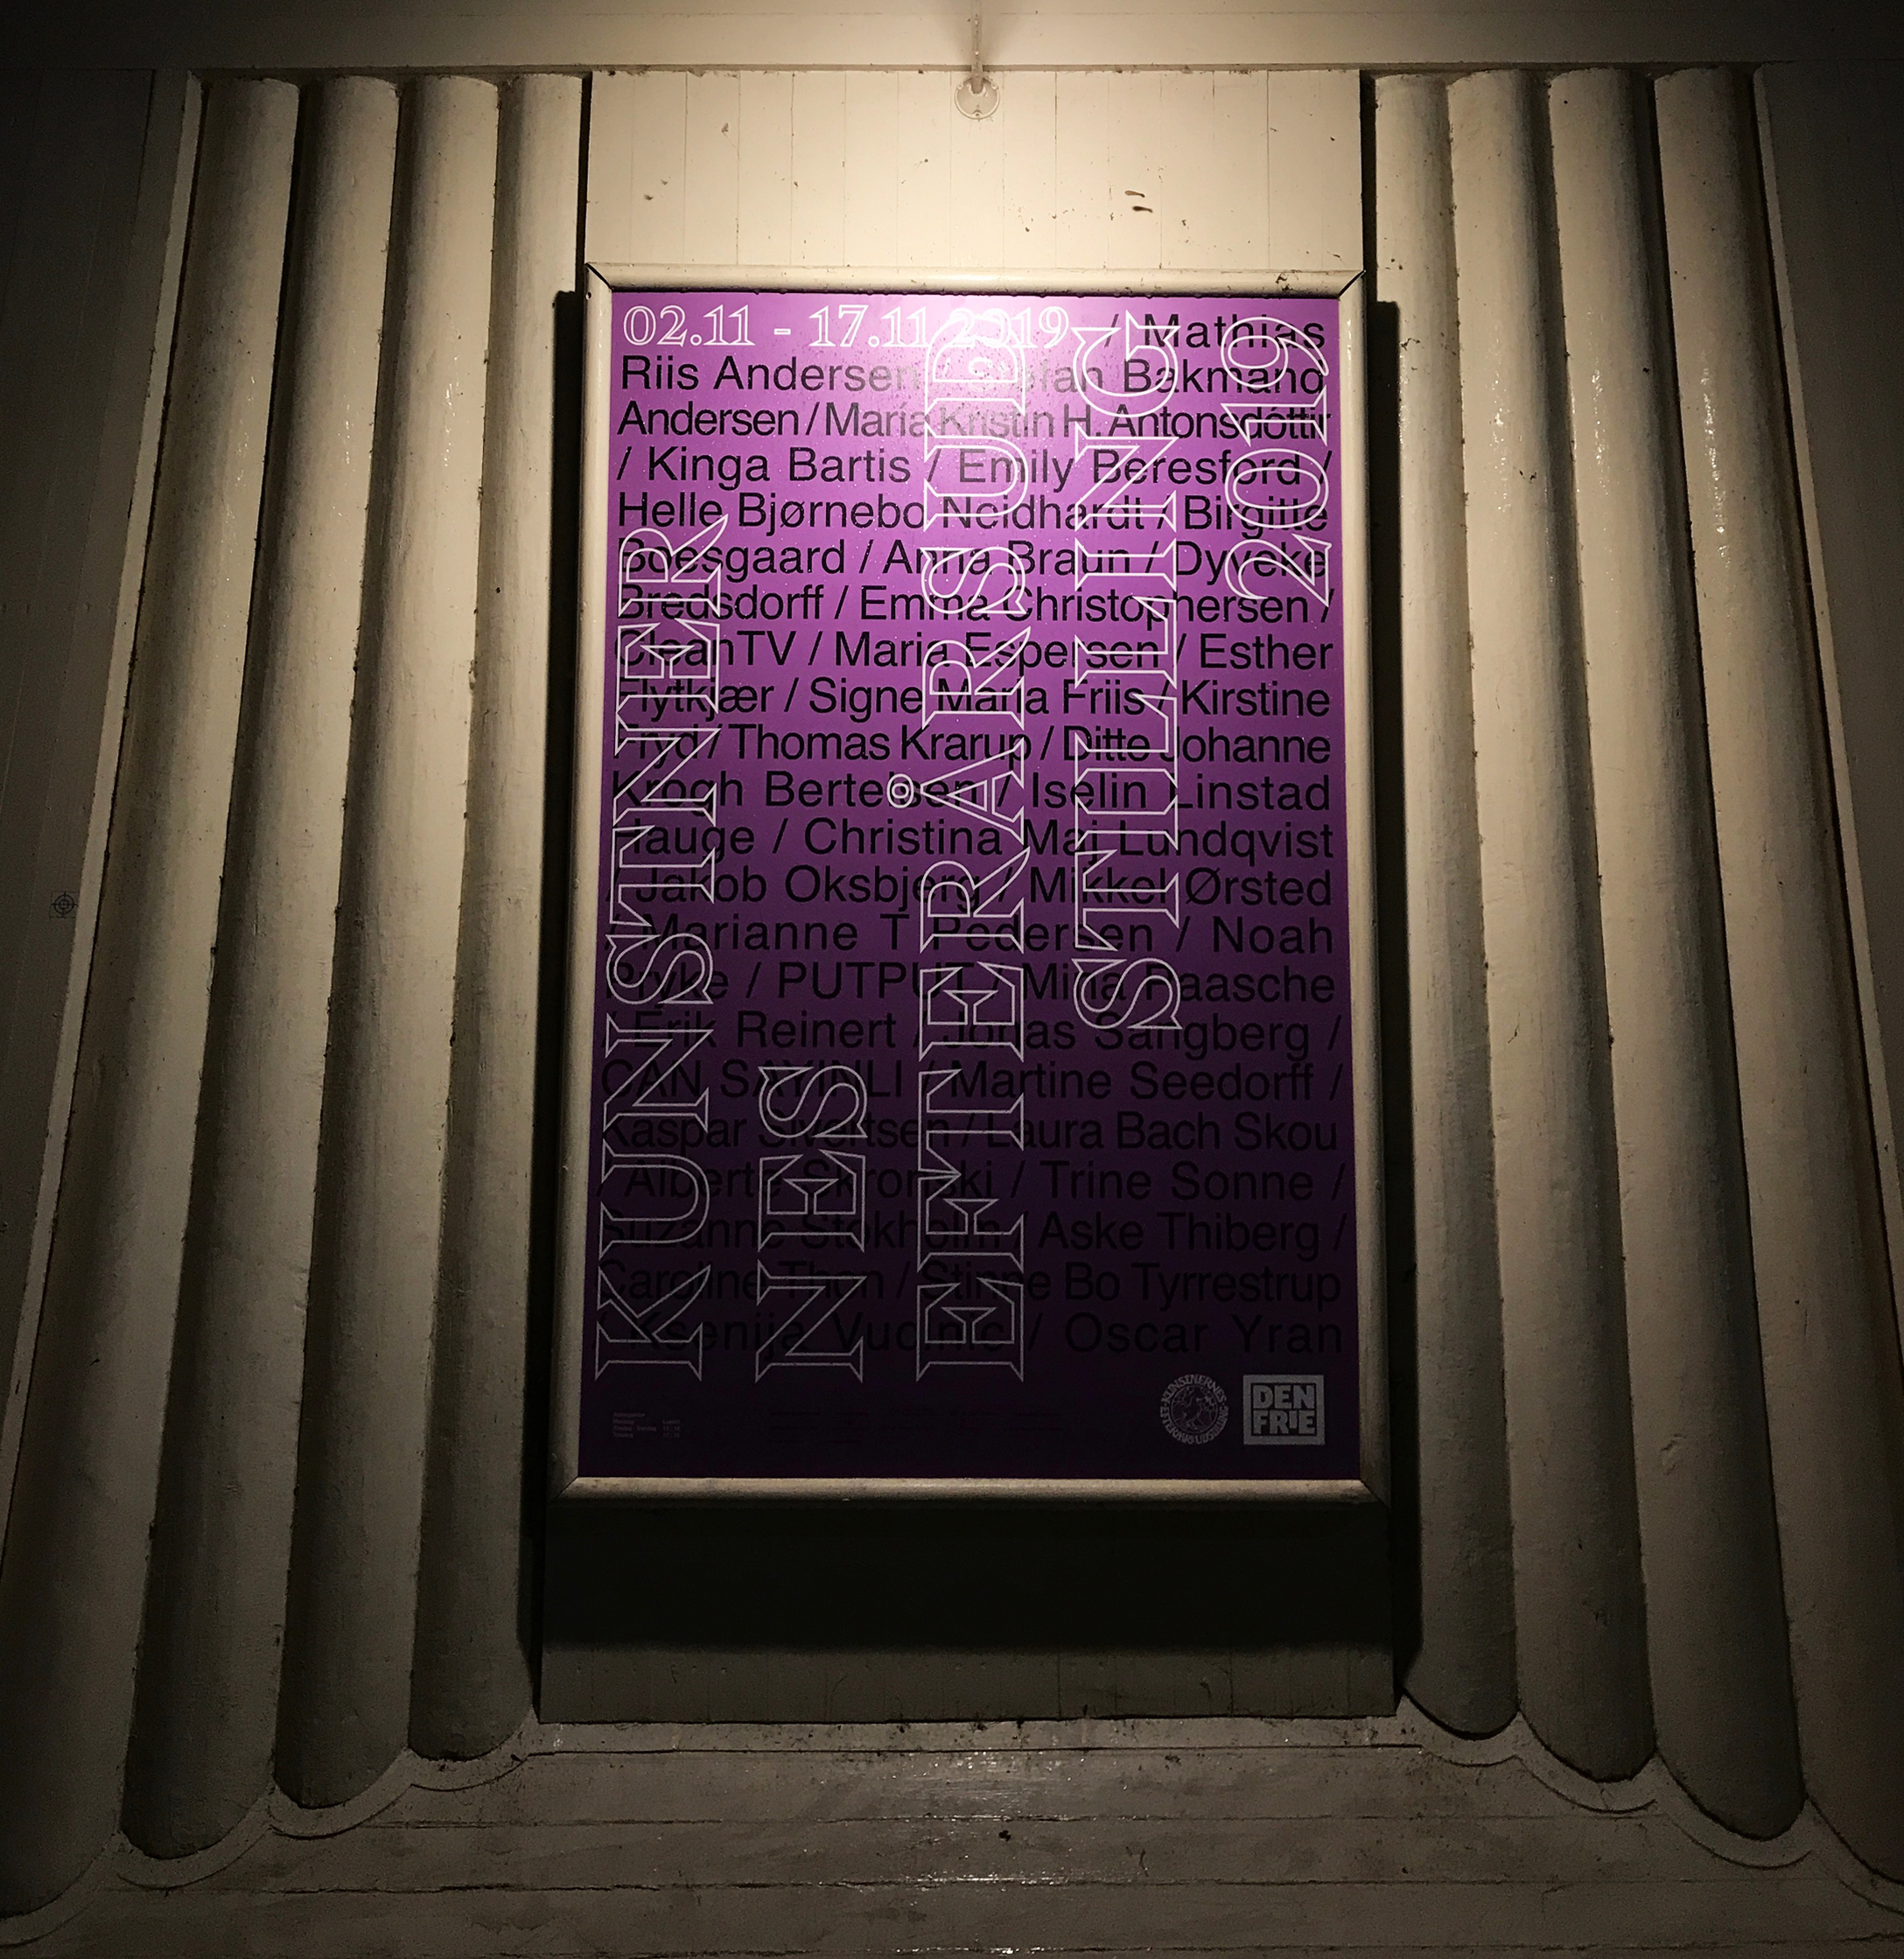 02.11 - 17.11 2019 / Mathias
Riis Andersen / Bakmand
Andersen / María Kristín H. Antonsdóttir
/ Kinga Bartis / Emily Beresford /
Helle Bjørnebo Neidhardt / Birgitte
Boesgaard / Anna Braun / Dyveke
Bredsdorff / Emma Christophersen /
CleanTV / Maria Espersen / Esther
Flytkjær / Signe Maria Friis / Kirstine
Thomas Krarup / Ditte Johanne
Krogh Bertelsen / Iselin Linstad
Hauge / Christina Maj Lundqvist
/ Jakob Oksbjerg / Mikkel Ørsted
/ Marianne T Pedersen / Noah
Pryke / PUTPUT / Mina Paasche
/ Erik Reinert / Jonas Sangberg /
CAN SAYINLI / Martine Seedorff /
Kaspar Sivertsen / Laura Bach Skou
/ Alberte Skronski / Trine Sonne /
Suzanne Stokholm / Aske Thiberg /
Caroline Thon / Stinne Bo Tyrrestrup
/ Ksenija Vucinic / Oscar Yran
KUNSTNER
NES
EFTERÅRSUD
STILLING
2019
KUNSTNERNES EFTERÅRSUDSTILLING
DEN
FRIE